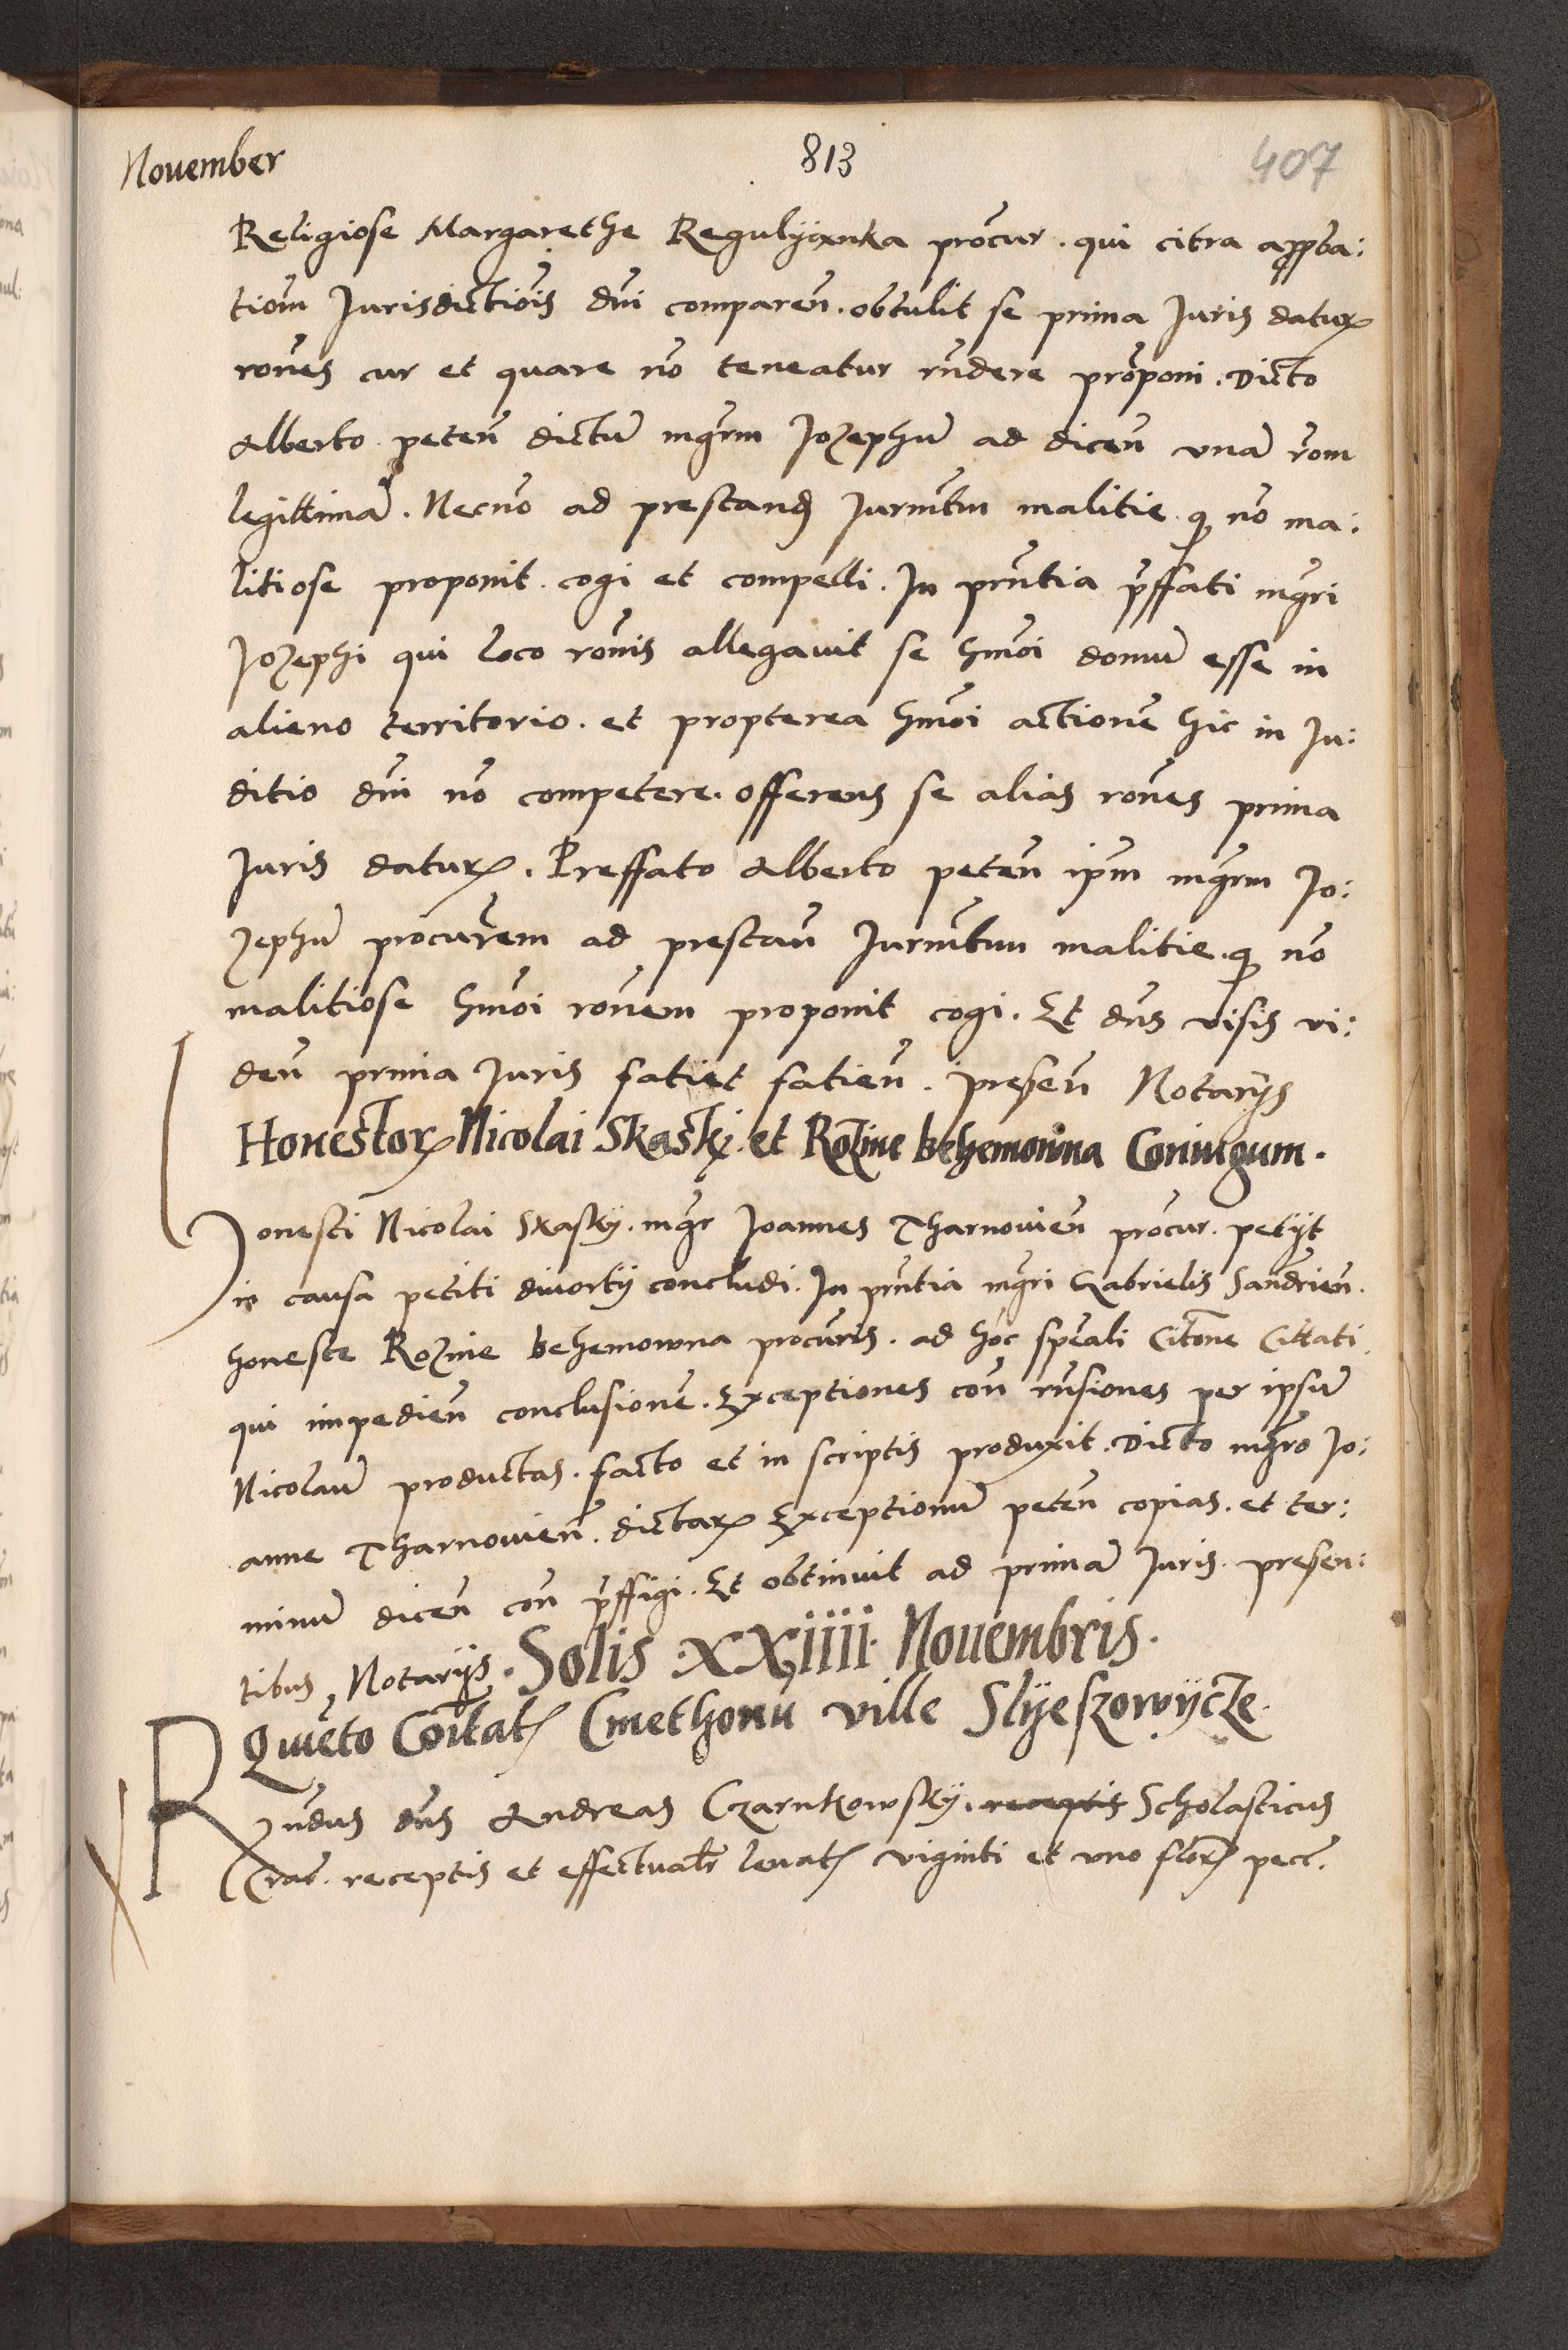 Nouember 813 407
Religiose Margarethe Regulyanka procur. qui citra appba:
tiom Jurisdictiois dni comparen. obtulit se prima Juris datur.
rones cur et quare no teneatur rndere proponi. Dicto
Alberto peten dictu mgrm Jozephu ad dicen vna rom
legittima. Necno ad prestand Jurmtm malitie q no ma:
litiose proponit cogi et compelli. In prntia pffati mgri
Jozephi qui loco ronis allegauit se hmoi domu esse in
alieno territorio. et propterea hmoi actione hic in Ju:
ditio dni no competere. offerens se alias rones prima
Juris datur. Preffato Alberto peten ipm mgrm Jo:
zephu procurem ad prestan Jurmtum malitie. q no
malitiose hmoi ronem proponit cogi. Et dns visis vi:
den prima Juris fatiet fatien. presen Notarys
Honestor Nicolai Skasky et Rozine behemowna Coniugum.
Honesti Nicolai Skasky. mgr Joannes Tharnouien procur. petyt
in causa petiti diuortij concludi. In prntia mgri Gabrielis Sandrien.
honeste Rozine behemowna procuris. ad hoc speali Citone Cittati
qui impedien conclusione. Exceptiones con rnsiones per ipsum
Nicolau productas. facto et in scriptis produxit. Dicto mgro Jo:
anne Tharnouien. dictar Exceptionu peten copias. et ter:
minu dicen con pffigi. Et obtinuit ad prima Juris. presen:
tibus Notarijs. Solis XXiiii Nouembris.
Quieto Contat Cmethonu ville Slyeszowycze.
Rndus dns Andreas Czarnkowsky. receptis Scholasticus
Crac. receptis et effectualr leuat viginti et vno flor pecc.